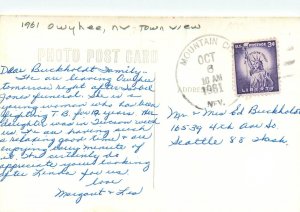 1961 Owyhee, NV. TOWN VIEW
PHOTO POST CARD
Dear Buckholdt Family -
We are leaving Owyhee
tomorrow right after
Jones funeral. She is a
young woman who has been
fighting T.B. for 12 years. Her
daughter was in Tucson with
us. I'm having such
a relaxing good time & am
enjoying every minute of
it. We certainly do
appreciate your looking
after Linda for us.
Love
Margaret & Les
MOUNTAIN
OCT
3
10 AM
1961
NEV.
U.S. POSTAGE 3¢
LIBERTY
ADDRESS
Mr & Mrs Ed Buckholdt
16539 4th Ave So.
Seattle 88 Wash.